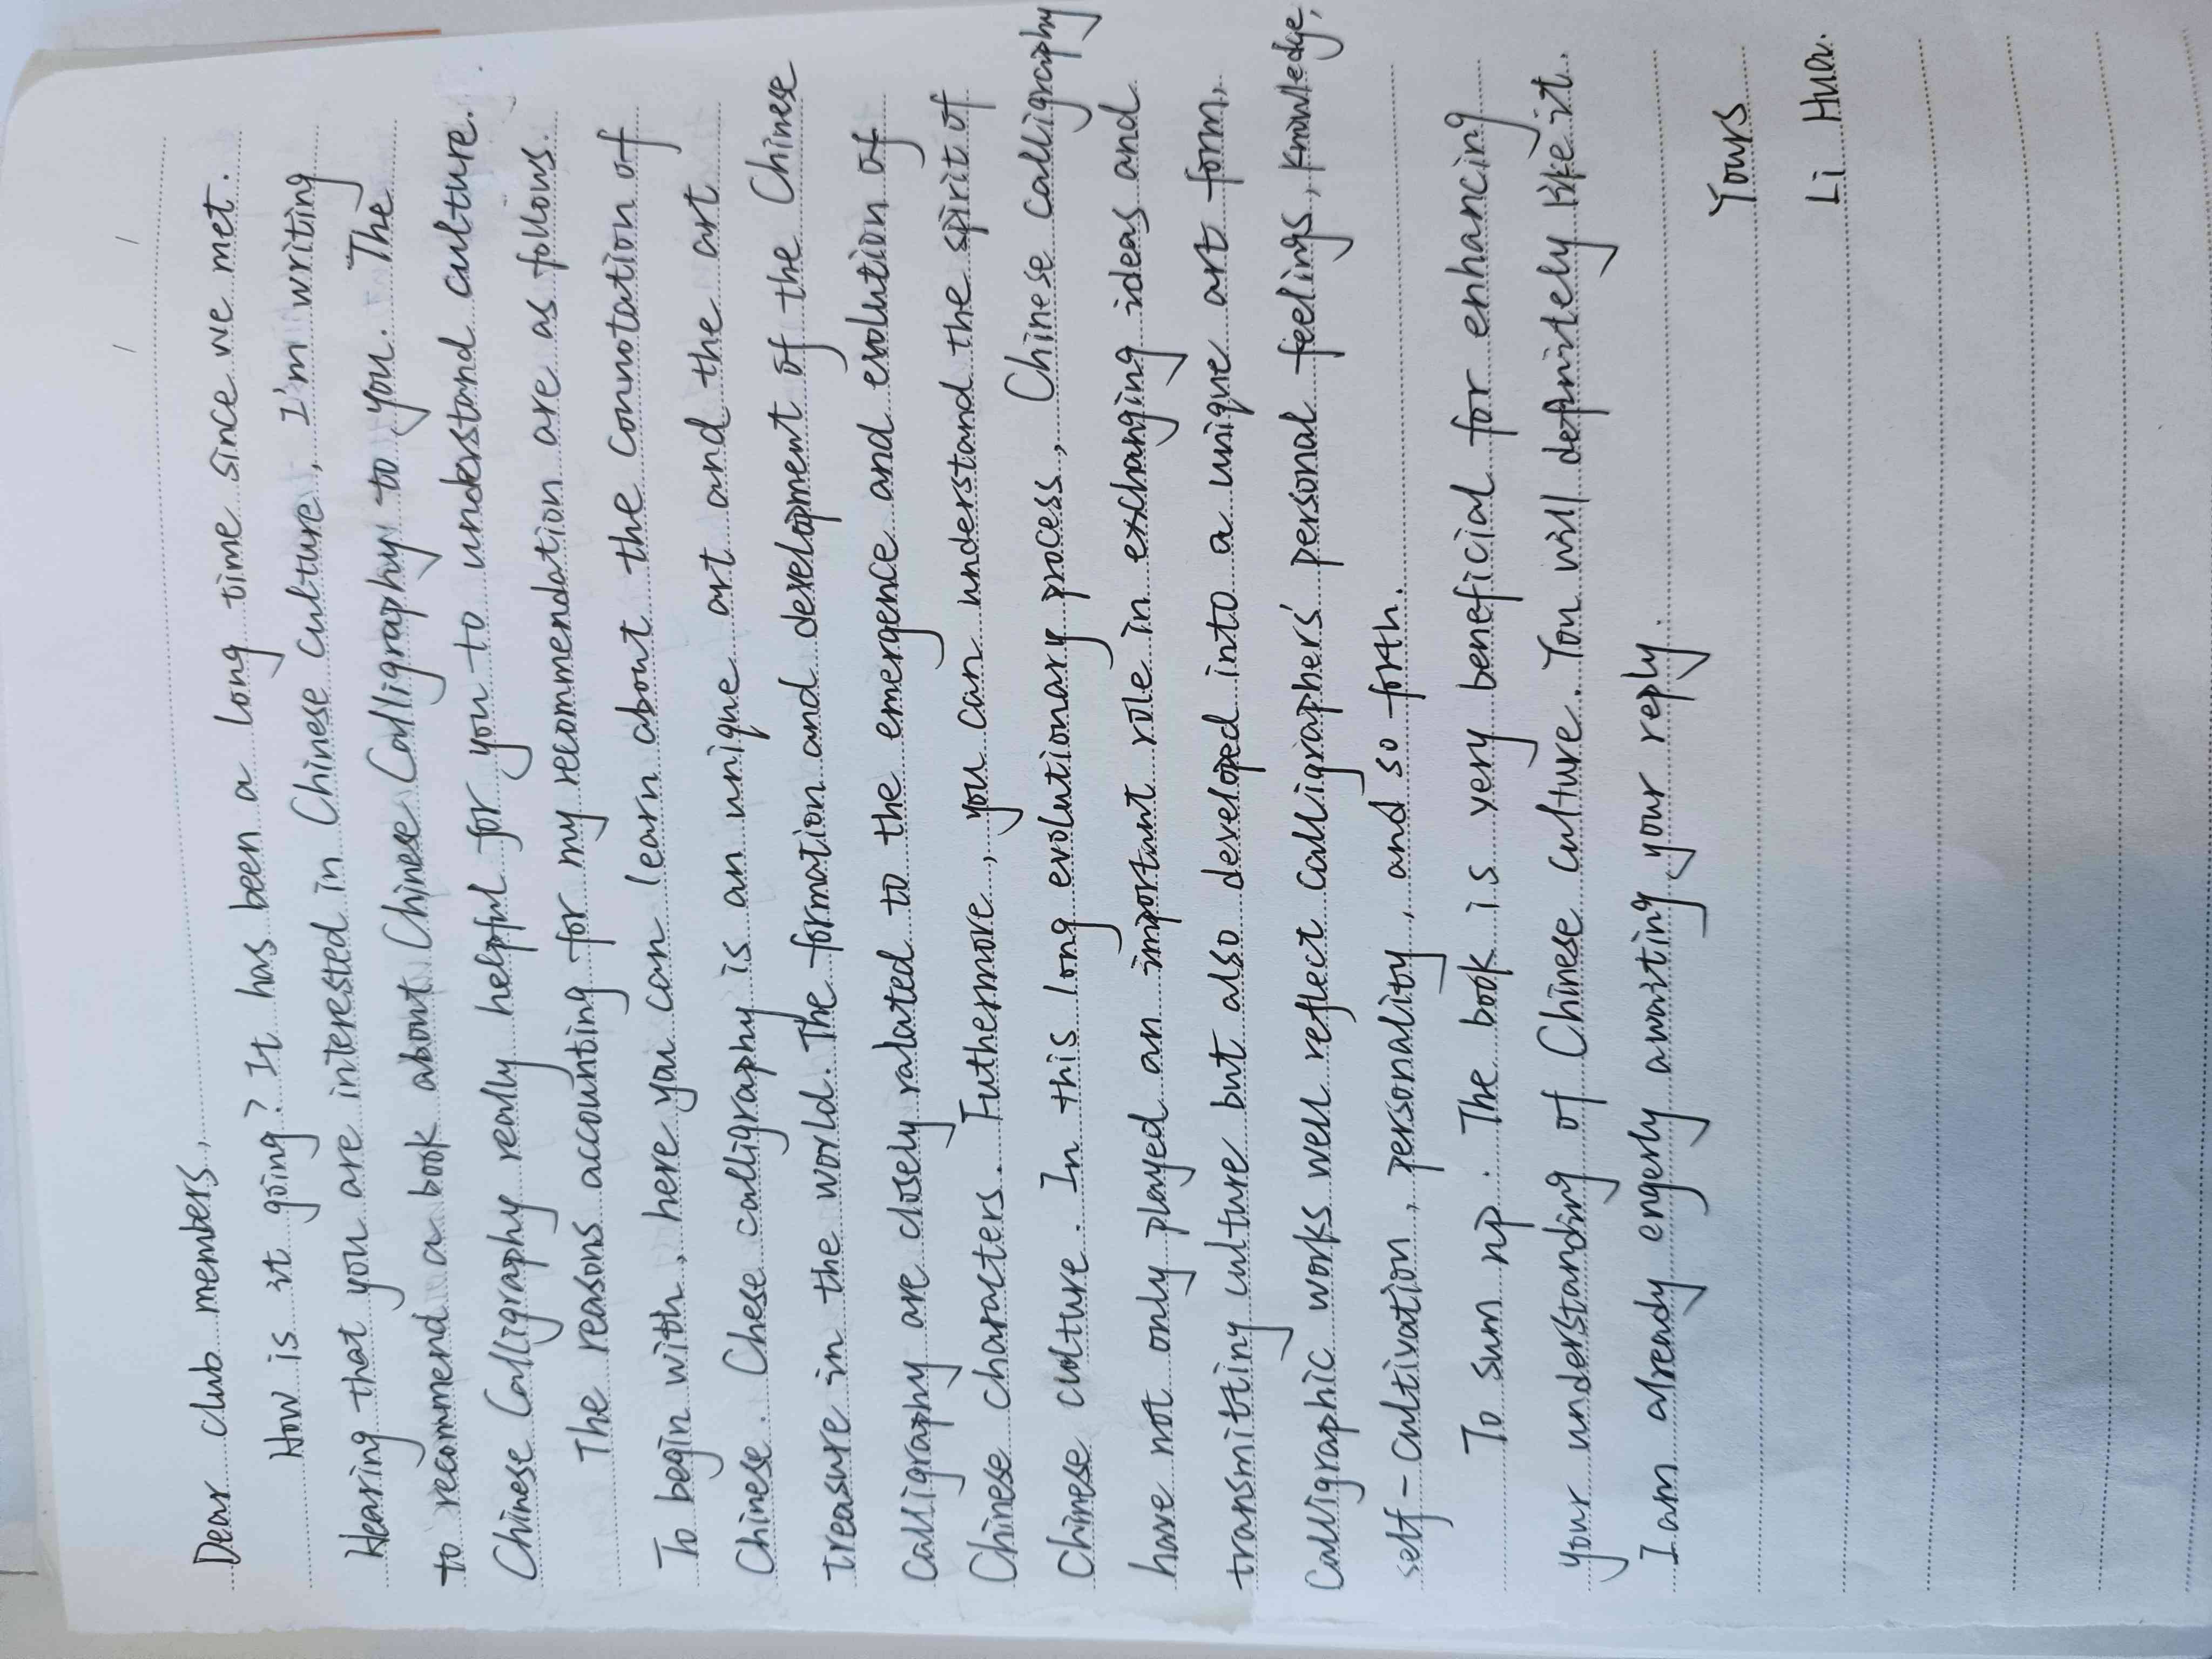 Dear club members,
How is it going? It has been a long time since we met.
Hearing that you are interested in Chinese culture, I'm writing
to recommend a book about Chinese Calligraphy to you. The
Chinese Calligraphy really helpful for you to understand culture.
The reasons accounting for my recommendation are as follows.
To begin with, here you can learn about the connotation of
Chinese. Chese calligraphy is an unique art and the art
treasure in the world. The formation and development of the Chinese
Calligraphy are closely ralated to the emergence and evolution of
Chinese characters. Futhermore, you can understand the spirit of
Chinese culture. In this long evolutionary process, Chinese calligraphy
have not only played an important role in exchanging ideas and
transmitting culture but also developed into a unique art form,
Calligraphic works well reflect calligraphers' personal feelings, knowledge,
self-cultivation, personality, and so forth.
To sum up. The book is very beneficial for enhancing
your understanding of Chinese culture. You will definitely like it.
I am already engerly awaiting your reply.
Yours
Li Hua.